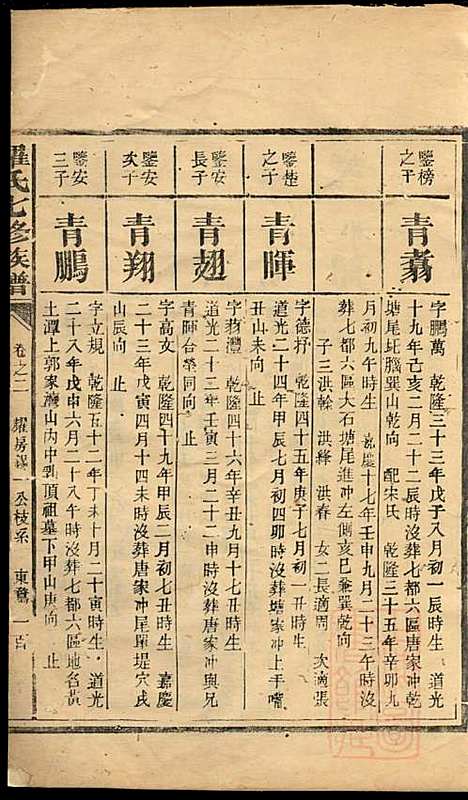 鑒榜
之子
青翥
字鵬萬 乾隆三十三年戊子八月初一辰時生 道光
十九年己亥二月二十二辰時沒葬七都六區唐家冲乾
塘尾坵腦巽山乾向 配宋氏 乾隆三十五年辛卯九
月初九辰時生 嘉慶十七年壬申九月二十三午時沒
葬七都六區大石塘尾進冲左側亥巳兼巽乾向
子三洪榦 洪絳 洪春 女二長適周 次適張
鑒楚
之子
青暉
字德杼 乾隆四十五年庚子七月初一丑時生
道光二十四年甲辰七月初四卯時沒葬塘家冲上手嘴
丑山未向 止
鑒安
長子
青翅
字翔灃 乾隆四十六年辛丑九月十七丑時生
道光二十二年壬寅三月二十二申時沒葬唐家冲與兄
青暉台塋同向 止
鑒安
次子
青翔
字高文 乾隆四十九年甲辰二月初七丑時生 嘉慶
二十三年戊寅四月十四未時沒葬唐家冲尾單堤穴戌
山辰向 止
鑒安
三子
青鵬
字立規 乾隆五十二年丁未十月二十寅時生 道光
二十八年戊申六月二十八午時沒葬七都六區地名黃
土潭上郭家灣山內中到頂祖墓下甲山庚向 止
羅氏七修族譜
卷之二 耀房謀一公枝系 東鷟 一百